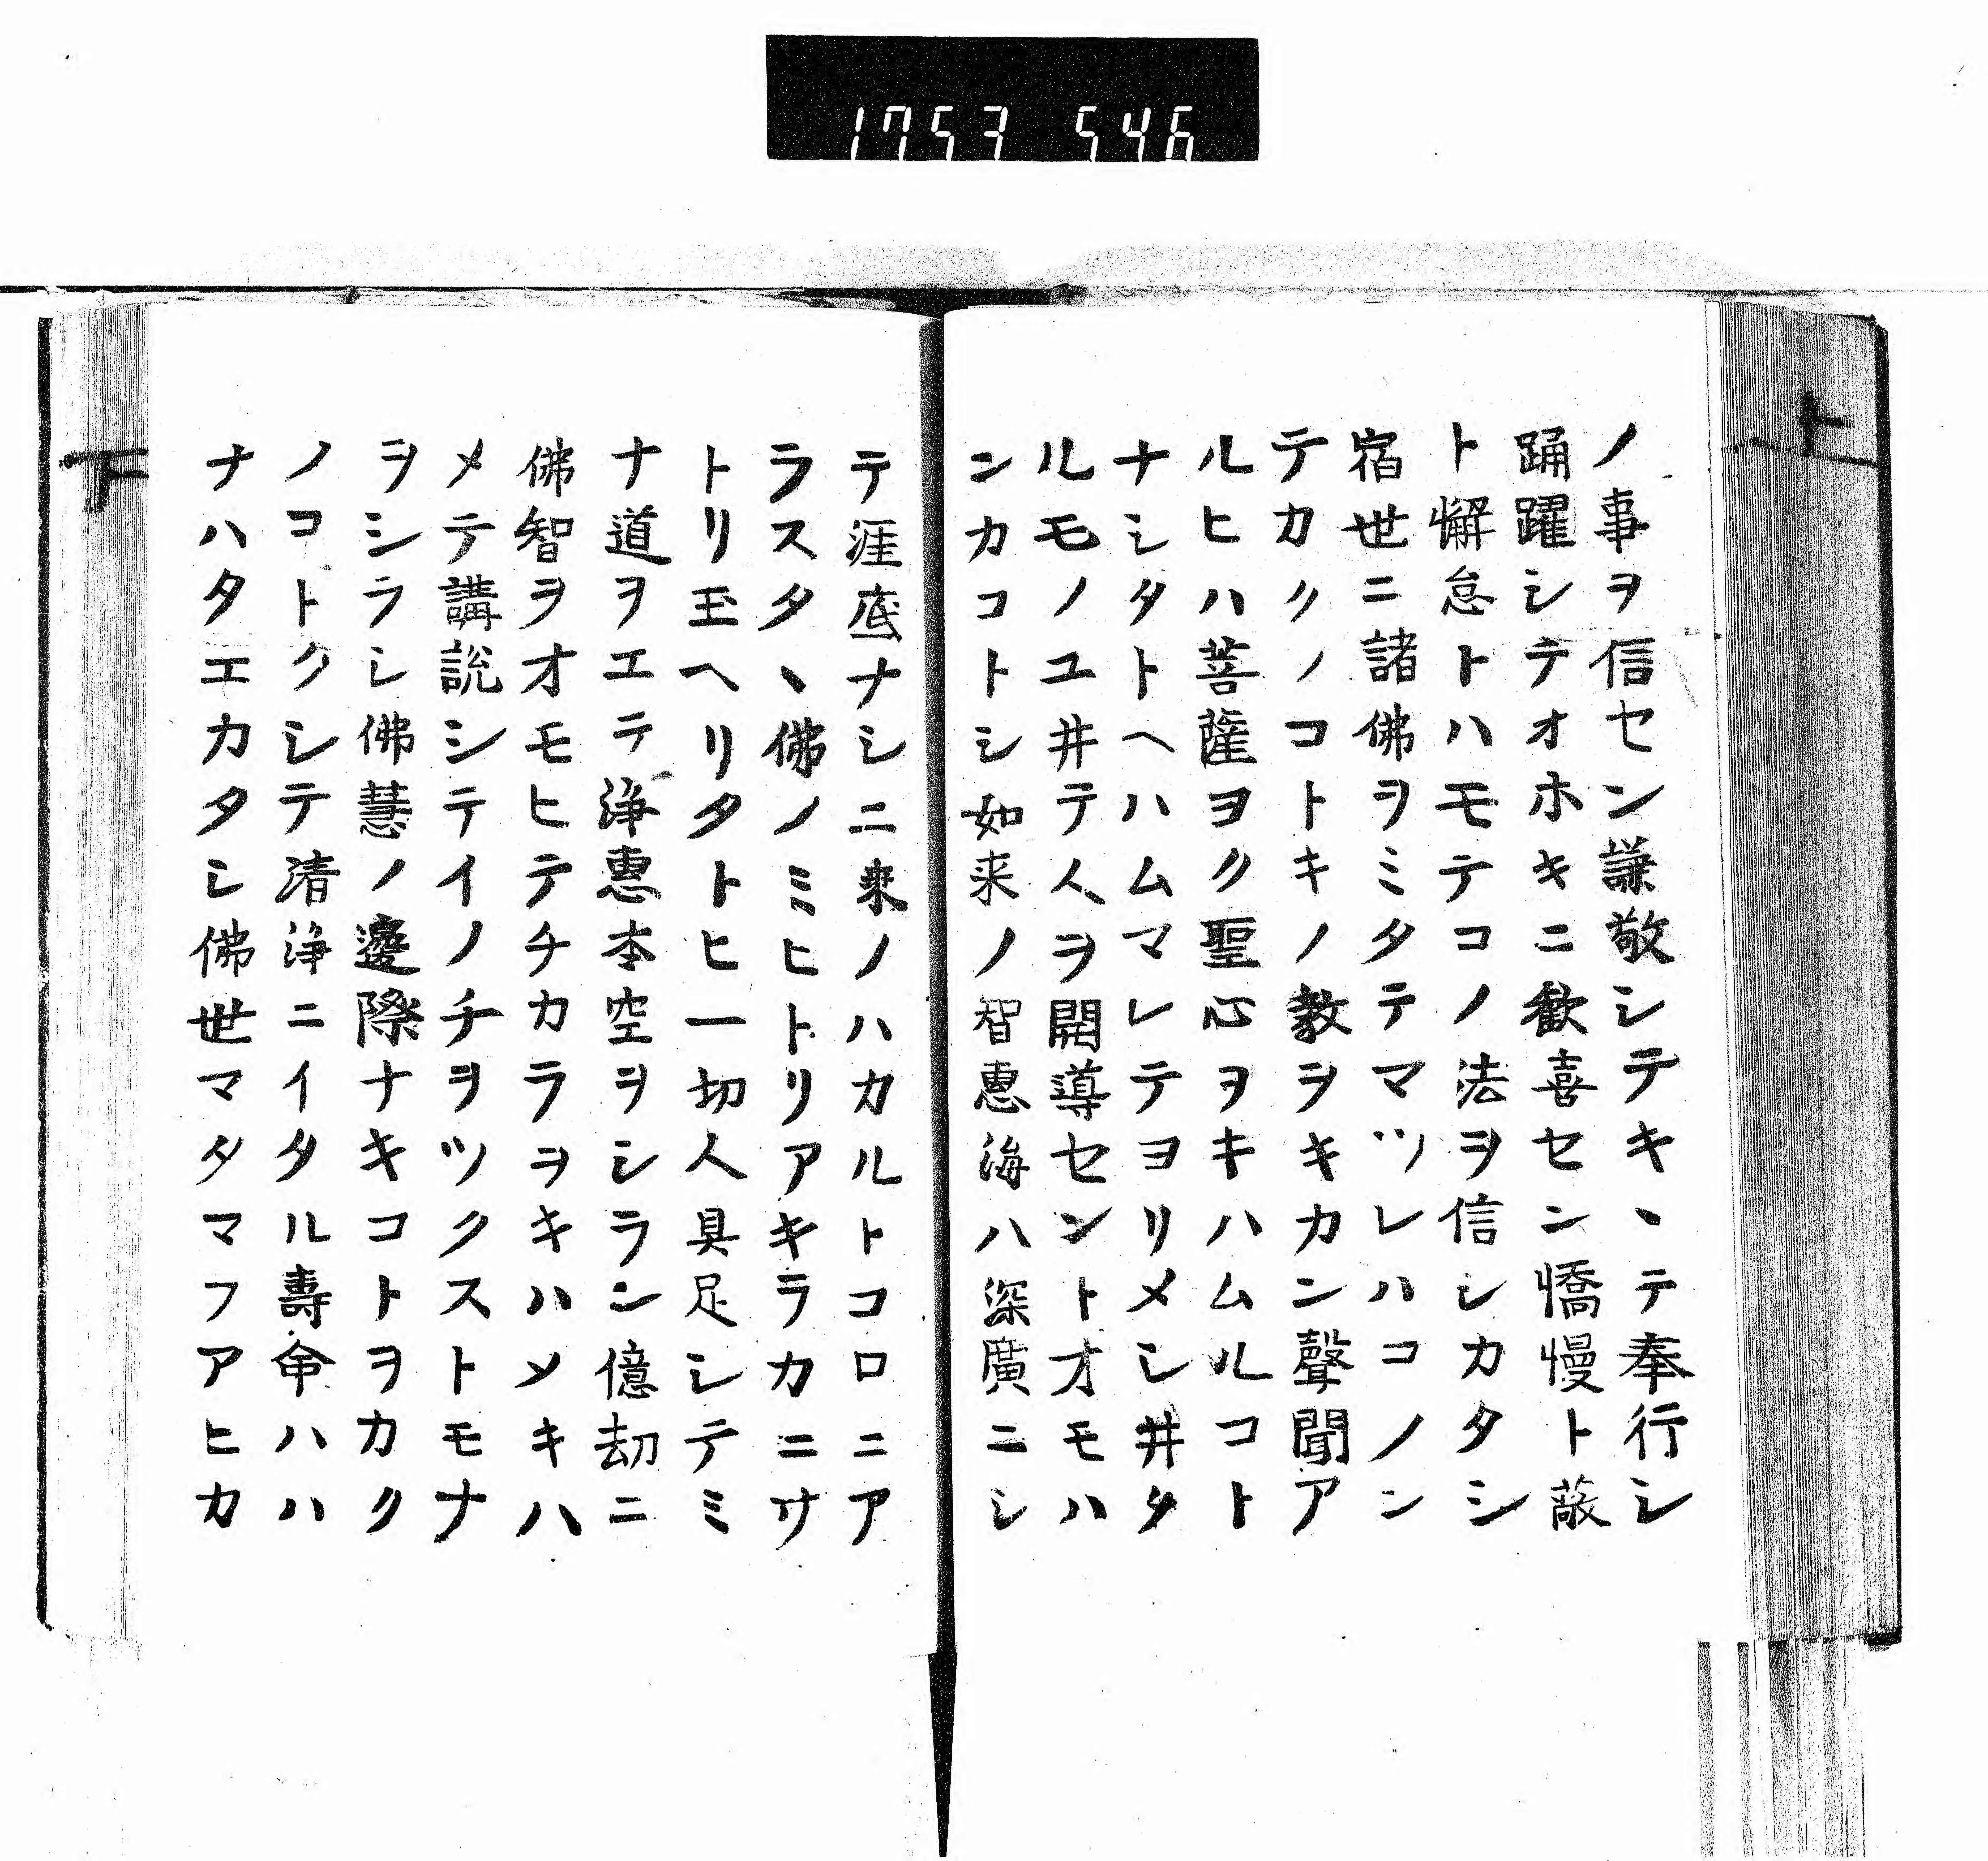 1753 546
ノ事ヲ信セン謙敬シテキヽテ奉行シ
踊躍シテオホキニ歓喜セン憍慢ト蔽
ト懈怠トハモテコノ法ヲ信シカタシ
宿世ニ諸佛ヲミタテマツレハコノン
テカクノコトキノ教ヲキカン聲聞ア
ルヒハ菩薩ヨク聖心ヲキハムルコト
ナシタトヘハムマレテヨリメシ井タ
ルモノユ井テ人ヲ開導セントオモハ
ンカコトシ如来ノ智惠海ハ深廣ニシ
テ涯底ナシ二乗ノハカルトコロニア
ラスタヽ佛ノミヒトリアキラカニサ
トリ玉ヘリタトヒ一切人具足シテミ
ナ道ヲエテ浄惠本空ヲシラン億劫ニ
佛智ヲオモヒテチカラヲキハメキハ
メテ講説シテイノチヲツクストモナ
ヲシラシ佛慧ノ邊際ナキコトヲカク
ノコトクシテ清浄ニイタル壽命ハハ
ナハタエカタシ佛世マタマフアヒカ
ト
下